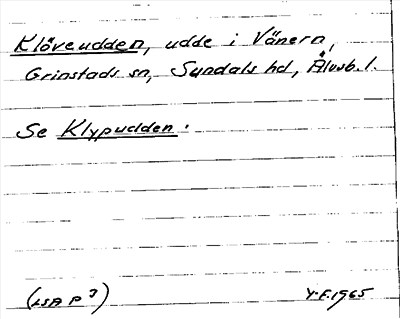 Klöveudden, udde i Vänern,
Grinstads sn, Sundals hd, Älvsb. l.
Se Klypudden.
(LSA P 3) Y.F. 1965